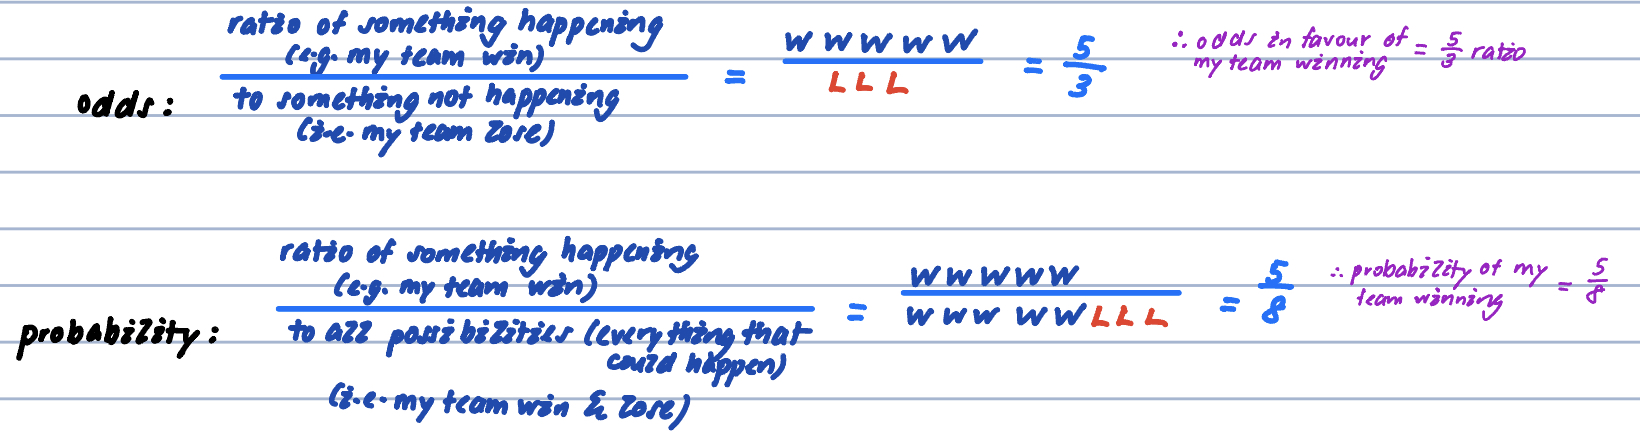 ratio of something happening
(e.g. my team win)
odds:
to something not happening
(i.e. my team lose)
=
W W W W W
L L L
= 5/3
∴ odds in favour of
my team winning = 5/3 ratio
ratio of something happening
(e.g. my team win)
probability:
to all possibilities (everything that
could happen)
(i.e. my team win & lose)
=
W W W W W
W W W W W L L L
= 5/8
∴ probability of my
team winning = 5/8